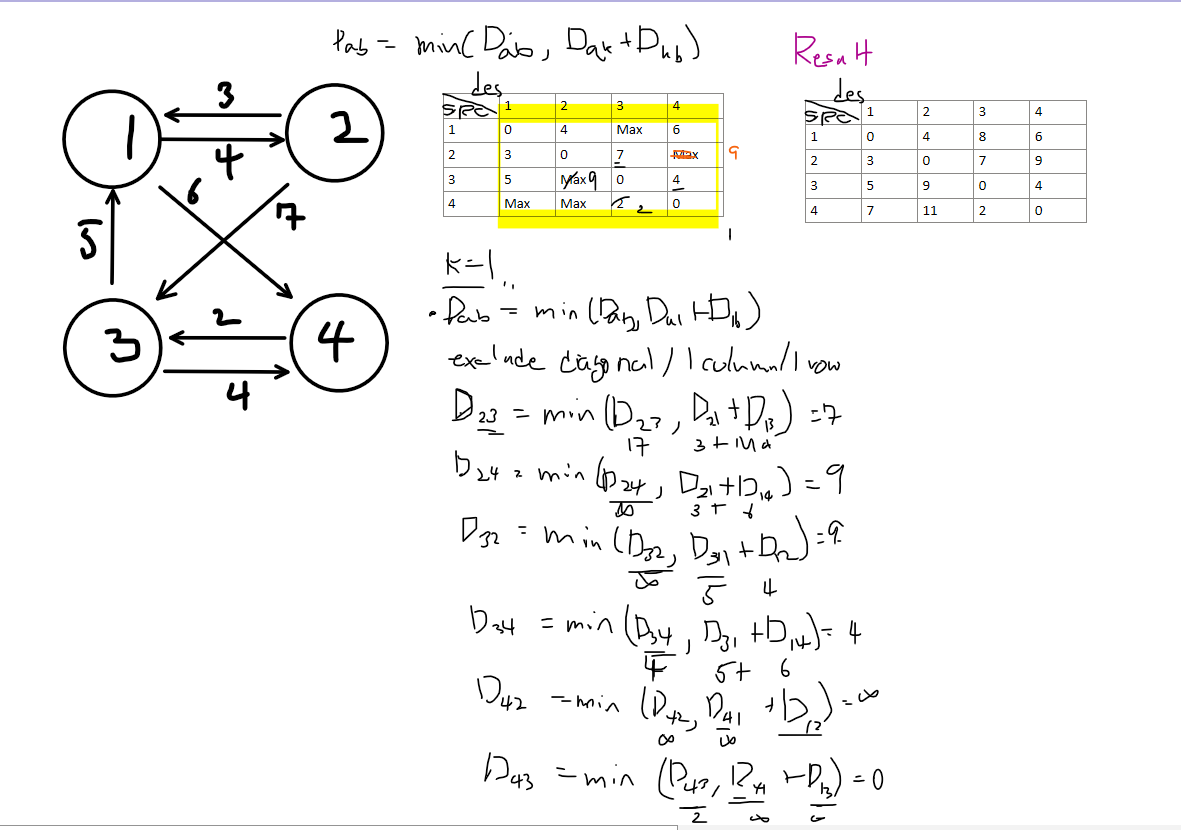 Dab = min(Dab, Dak + Dkb)
Result
des
SRC 1 2 3 4
1 0 4 Max 6
2 3 0 7 Max 9
3 5 Max 9 0 4
4 Max Max 2 2 0
1
des
SRC 1 2 3 4
1 0 4 8 6
2 3 0 7 9
3 5 9 0 4
4 7 11 2 0
3
1 2
4
6
7
5
2
3 4
4
k=1
Dab = min(Dab, Da1 + D1b)
exclude diagonal / 1 column / 1 row
D23 = min(D23, D21 + D13) = 7
17 3 + Ma
D24 = min(D24, D21 + D14) = 9
∞ 3 + 6
D32 = min(D32, D31 + D12) = 9
∞ 5 4
D34 = min(D34, D31 + D14) = 4
4 5+ 6
D42 = min(D42, D41 + D12) = ∞
∞ ∞
D43 = min(D43, D41 + D13) = 0
2 ∞